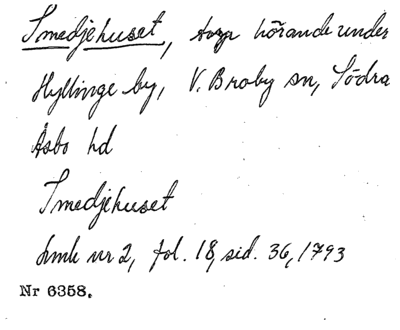 Smedjehuset, torp hörande under
Hyllinge by, V. Broby sn, Södra
Åsbo hd
Smedjehuset
Lmk nr 2, fol. 18, sid. 36, 1793
Nr 6358.